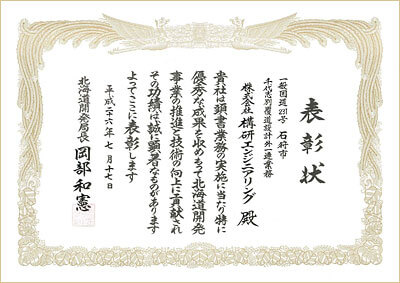 表彰状
一般国道231号 石狩市
千代志別覆道設計外一連業務
株式会社 構研エンジニアリング 殿
貴社は頭書業務の実施に当り特に
優秀な成果を収めもって北海道開発
事業の推進と技術の向上に貢献され
その功績は誠に顕著なものがあります
よってここに表彰します
平成二十六年七月十七日
北海道開発局長 岡部和憲